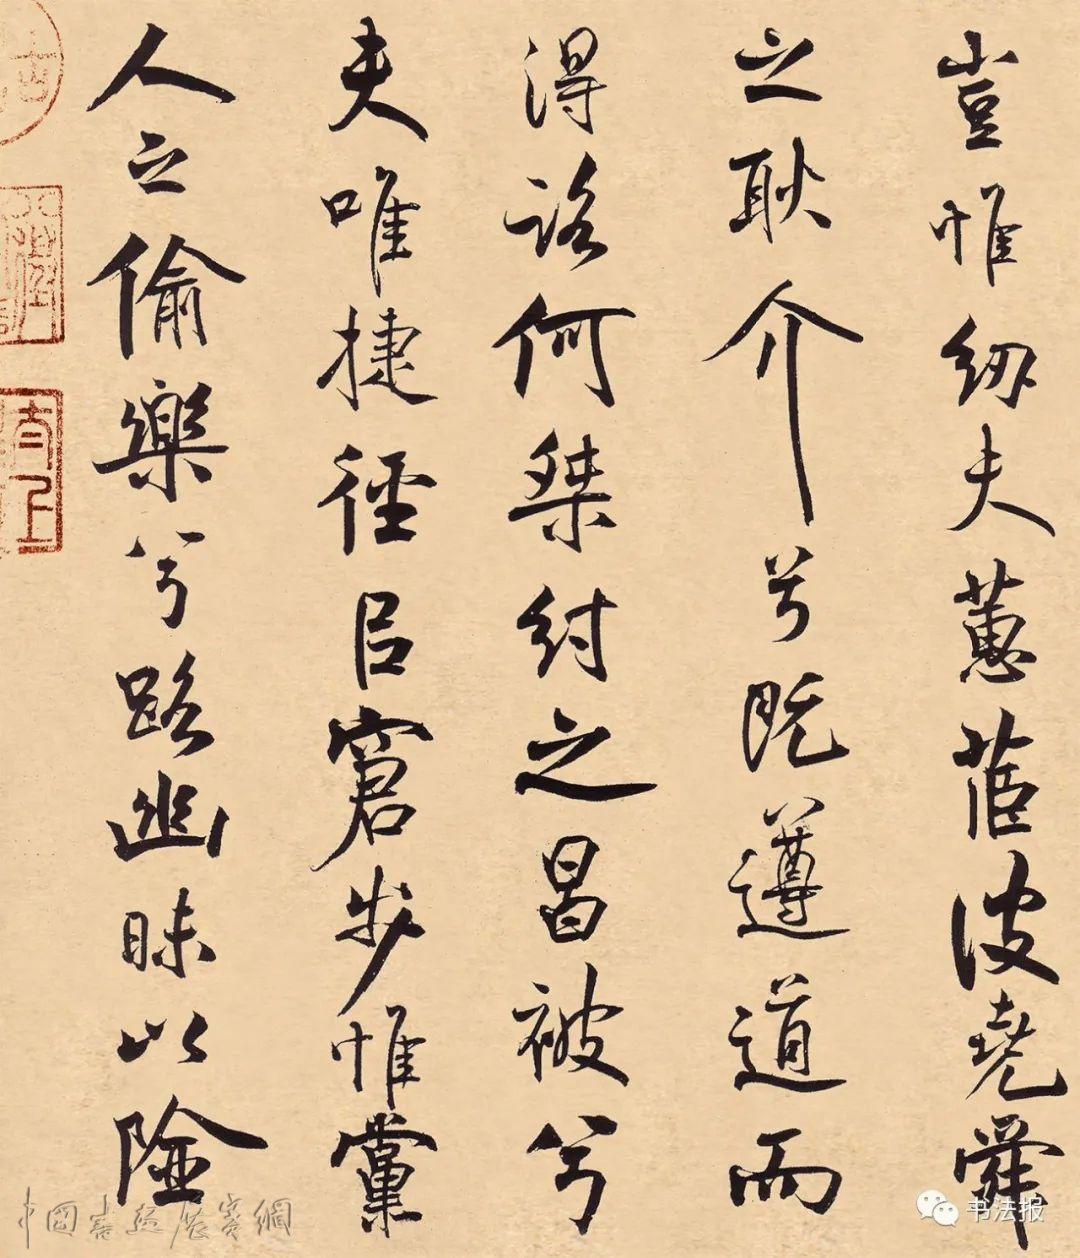 豈惟紉夫蕙茝彼堯舜
之耿介兮既遵道而
得路何桀紂之昌被兮
夫唯捷徑㠯窘步惟黨
人之偷樂兮路幽昧以險
中國書法展賽網
书法报